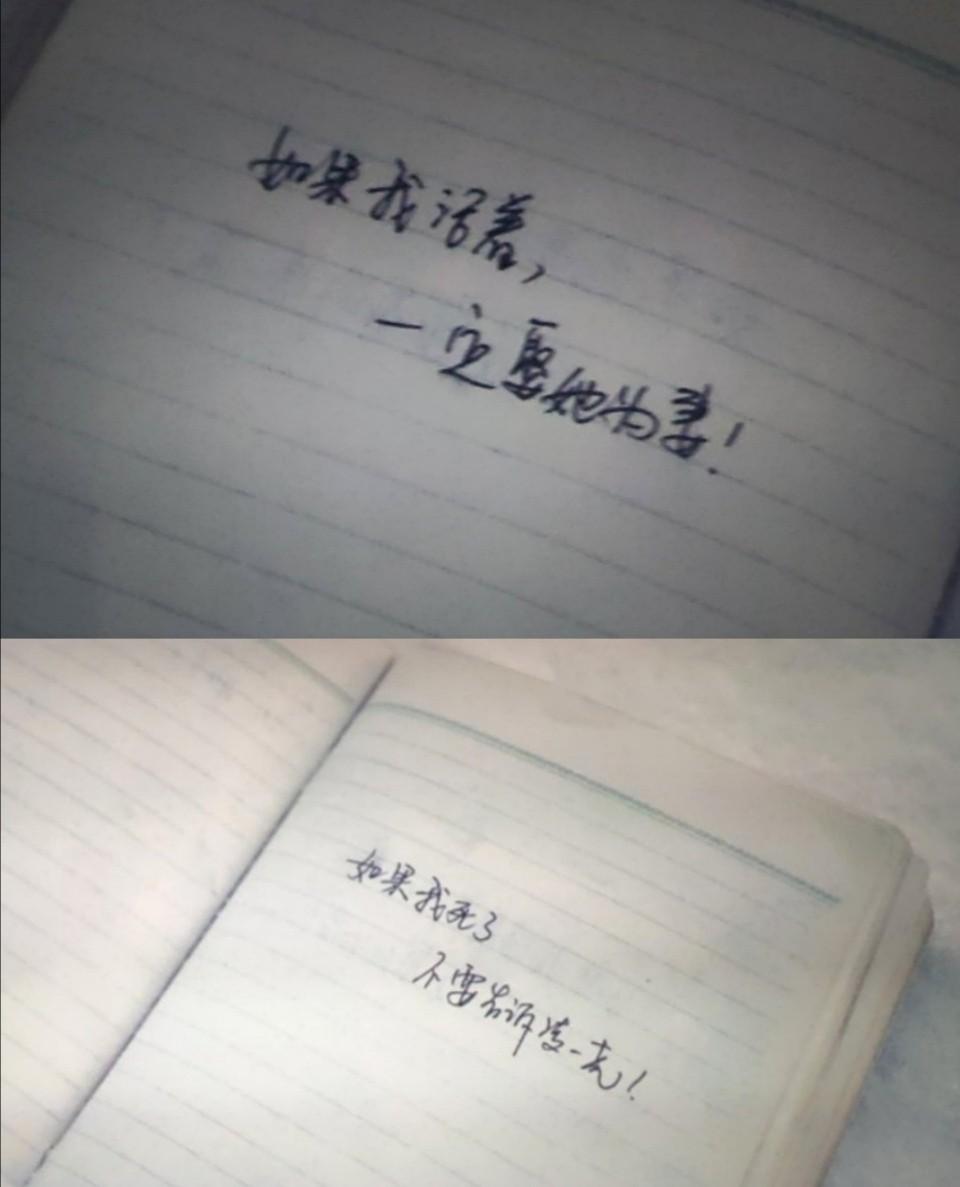 如果我活着，
一定要娶她为妻！
如果我死了
不要告诉凌一尧！